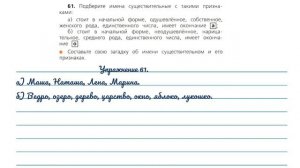 61. Подберите имена существительные с такими призна-
ками:
а) стоит в начальной форме, одушевлённое, собственное,
женского рода, единственного числа, имеет окончание а
б) стоит в начальной форме, неодушевлённое, нарица-
тельное, среднего рода, единственного числа, имеет оконча-
ние о
• Составьте свою загадку об имени существительном и его
признаках.
Упражнение 61.
а) Маша, Наташа, Лена, Марина.
б) Ведро, озеро, дерево, царство, окно, яблоко, лукошко.